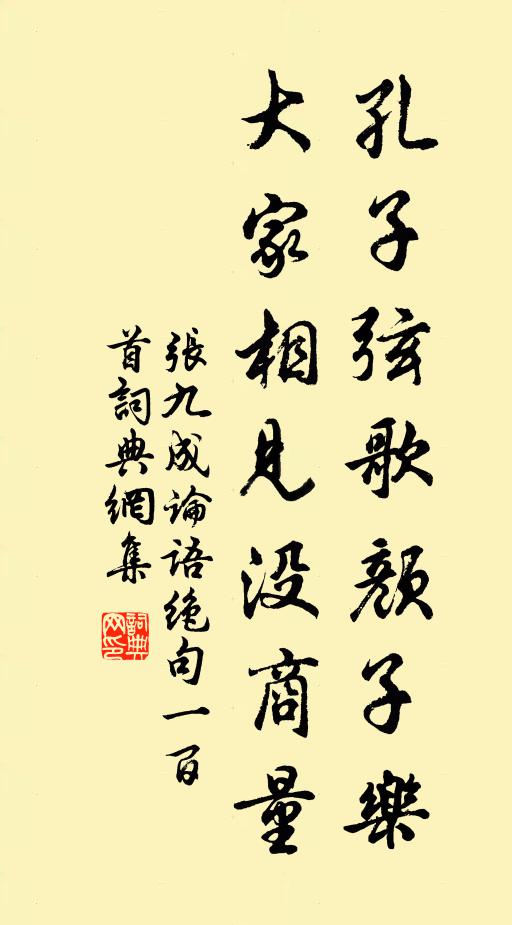 孔子弦歌顏子樂
大家相見没商量
張九成論語絶句一百
首詞典網集
詞典
网印